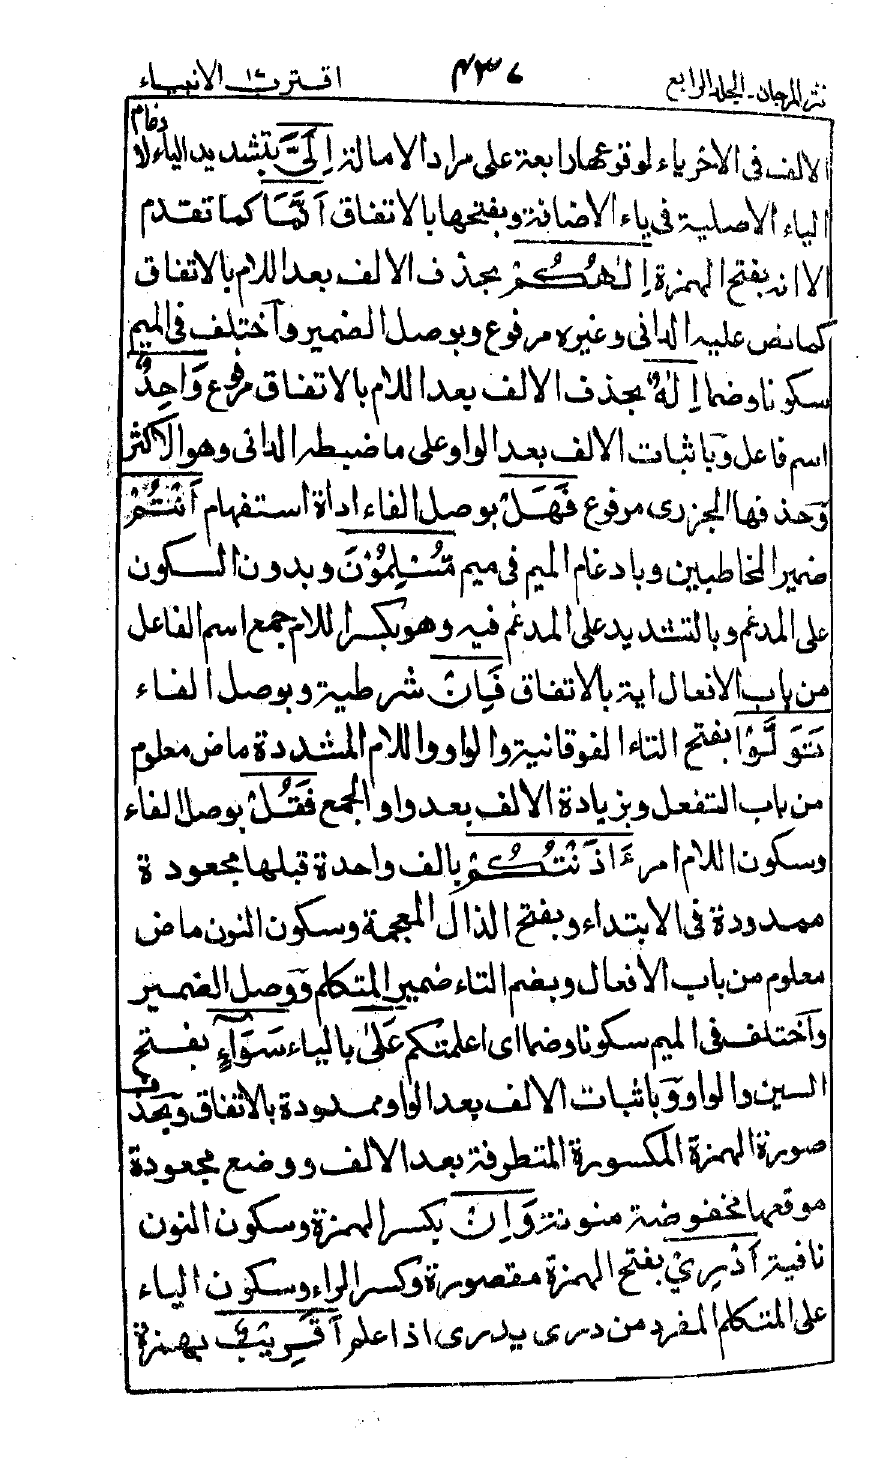 نثر المرجان - الجلد الرابع ٤٣٧ اقترب ١٧ الانبياء
الالف فى الاخر ياء لوقوعها رابعة على مراد الامالة إِلَىَّ بتشديد الياء لادغام
الياء الاصلية فى ياء الاضافة وبفتحها بالاتفاق أَنَّمَا كما تقدم
الا انه بفتح الهمزة إِلٰهُكُمْ بحذف الالف بعد اللام بالاتفاق
كما نص عليه الدانى وغيره مرفوع وبوصل الضمير وآختلف فى الميم
سكونا وضما إِلٰهٌ بحذف الالف بعد اللام بالاتفاق مرفوع وَاحِدٌ
اسم فاعل وباثبات الالف بعد الواو على ما ضبطه الدانى وهو الاكثر
وحذفها الجزرى مرفوع فَهَلْ بوصل الفاء اداة استفهام أَنْتُمْ
ضمير المخاطبين وبادغام الميم فى ميم مُسْلِمُوْنَ وبدون السكون
على المدغم وبالتشديد على المدغم فيه وهو بكسر اللام جمع اسم الفاعل
من باب الافعال اية بالاتفاق فَإِنْ شرطية وبوصل الفاء
تَوَلَّوْا بفتح التاء الفوقانية والواو واللام المشددة ماض معلوم
من باب التفعل وبزيادة الالف بعد واو الجمع فَقُلْ بوصل الفاء
وسكون اللام امر ءَاذَنْتُكُمْ بالف واحدة قبلها مجعودة
ممدودة فى الابتداء وبفتح الذال المعجمة وسكون النون ماض
معلوم من باب الافعال وبضم التاء ضمير المتكلم ووصل الضمير
وآختلف فى الميم سكونا وضما اى اعلمتكم عَلَىٰ بالياء سَوَآءٍ بفتح
السين والواو وباثبات الالف بعد الواو ممدودة بالاتفاق وبحذف
صورة الهمزة المكسورة المتطرفة بعد الالف ووضع مجعودة
موقعها مخفوضة منونة وَإِنْ بكسر الهمزة وسكون النون
نافية أَدْرِيْ بفتح الهمزة مقصورة وكسر الراء وسكون الياء
على المتكلم المفرد من درى يدرى اذا علم أَقَرِيْبٌ بهمزة